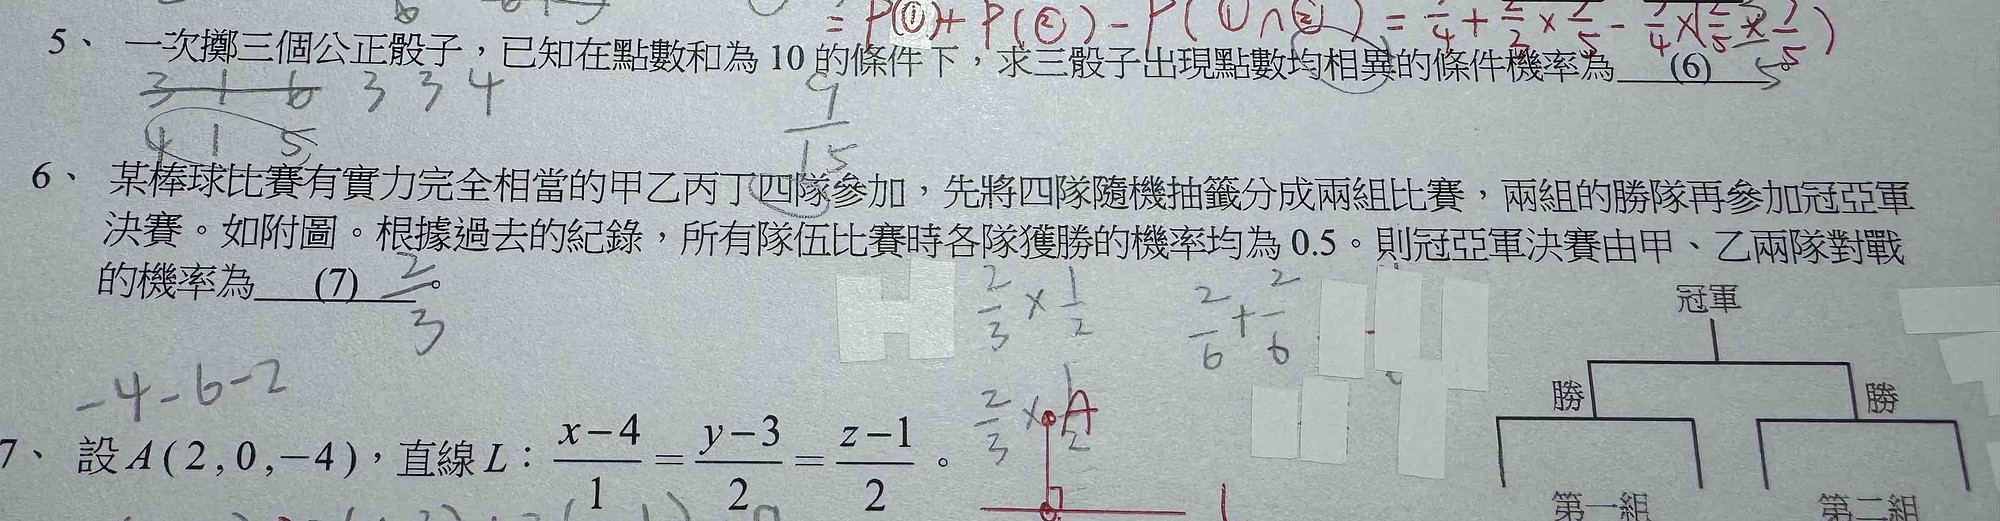 = P(①) + P(②) - P(①∩②) =
5、一次擲三個公正骰子,已知在點數和為 10 的條件下,求三骰子出現點數均相異的條件機率為 (6) 。
3 1 6 3 3 4
4 1 5
9/15
6、某棒球比賽有實力完全相當的甲乙丙丁四隊參加,先將四隊隨機抽籤分成兩組比賽,兩組的勝隊再參加冠亞軍
決賽。如附圖。根據過去的紀錄,所有隊伍比賽時各隊獲勝的機率均為 0.5。則冠亞軍決賽由甲、乙兩隊對戰
的機率為 (7) 。
2/3
2/3 × 1/2
2/6 + 2/6
冠軍
勝 勝
第一組 第二組
-4-6-2
2/3 × 1/2
A
7、設 A(2,0,-4),直線 L:(x-4)/1 = (y-3)/2 = (z-1)/2。